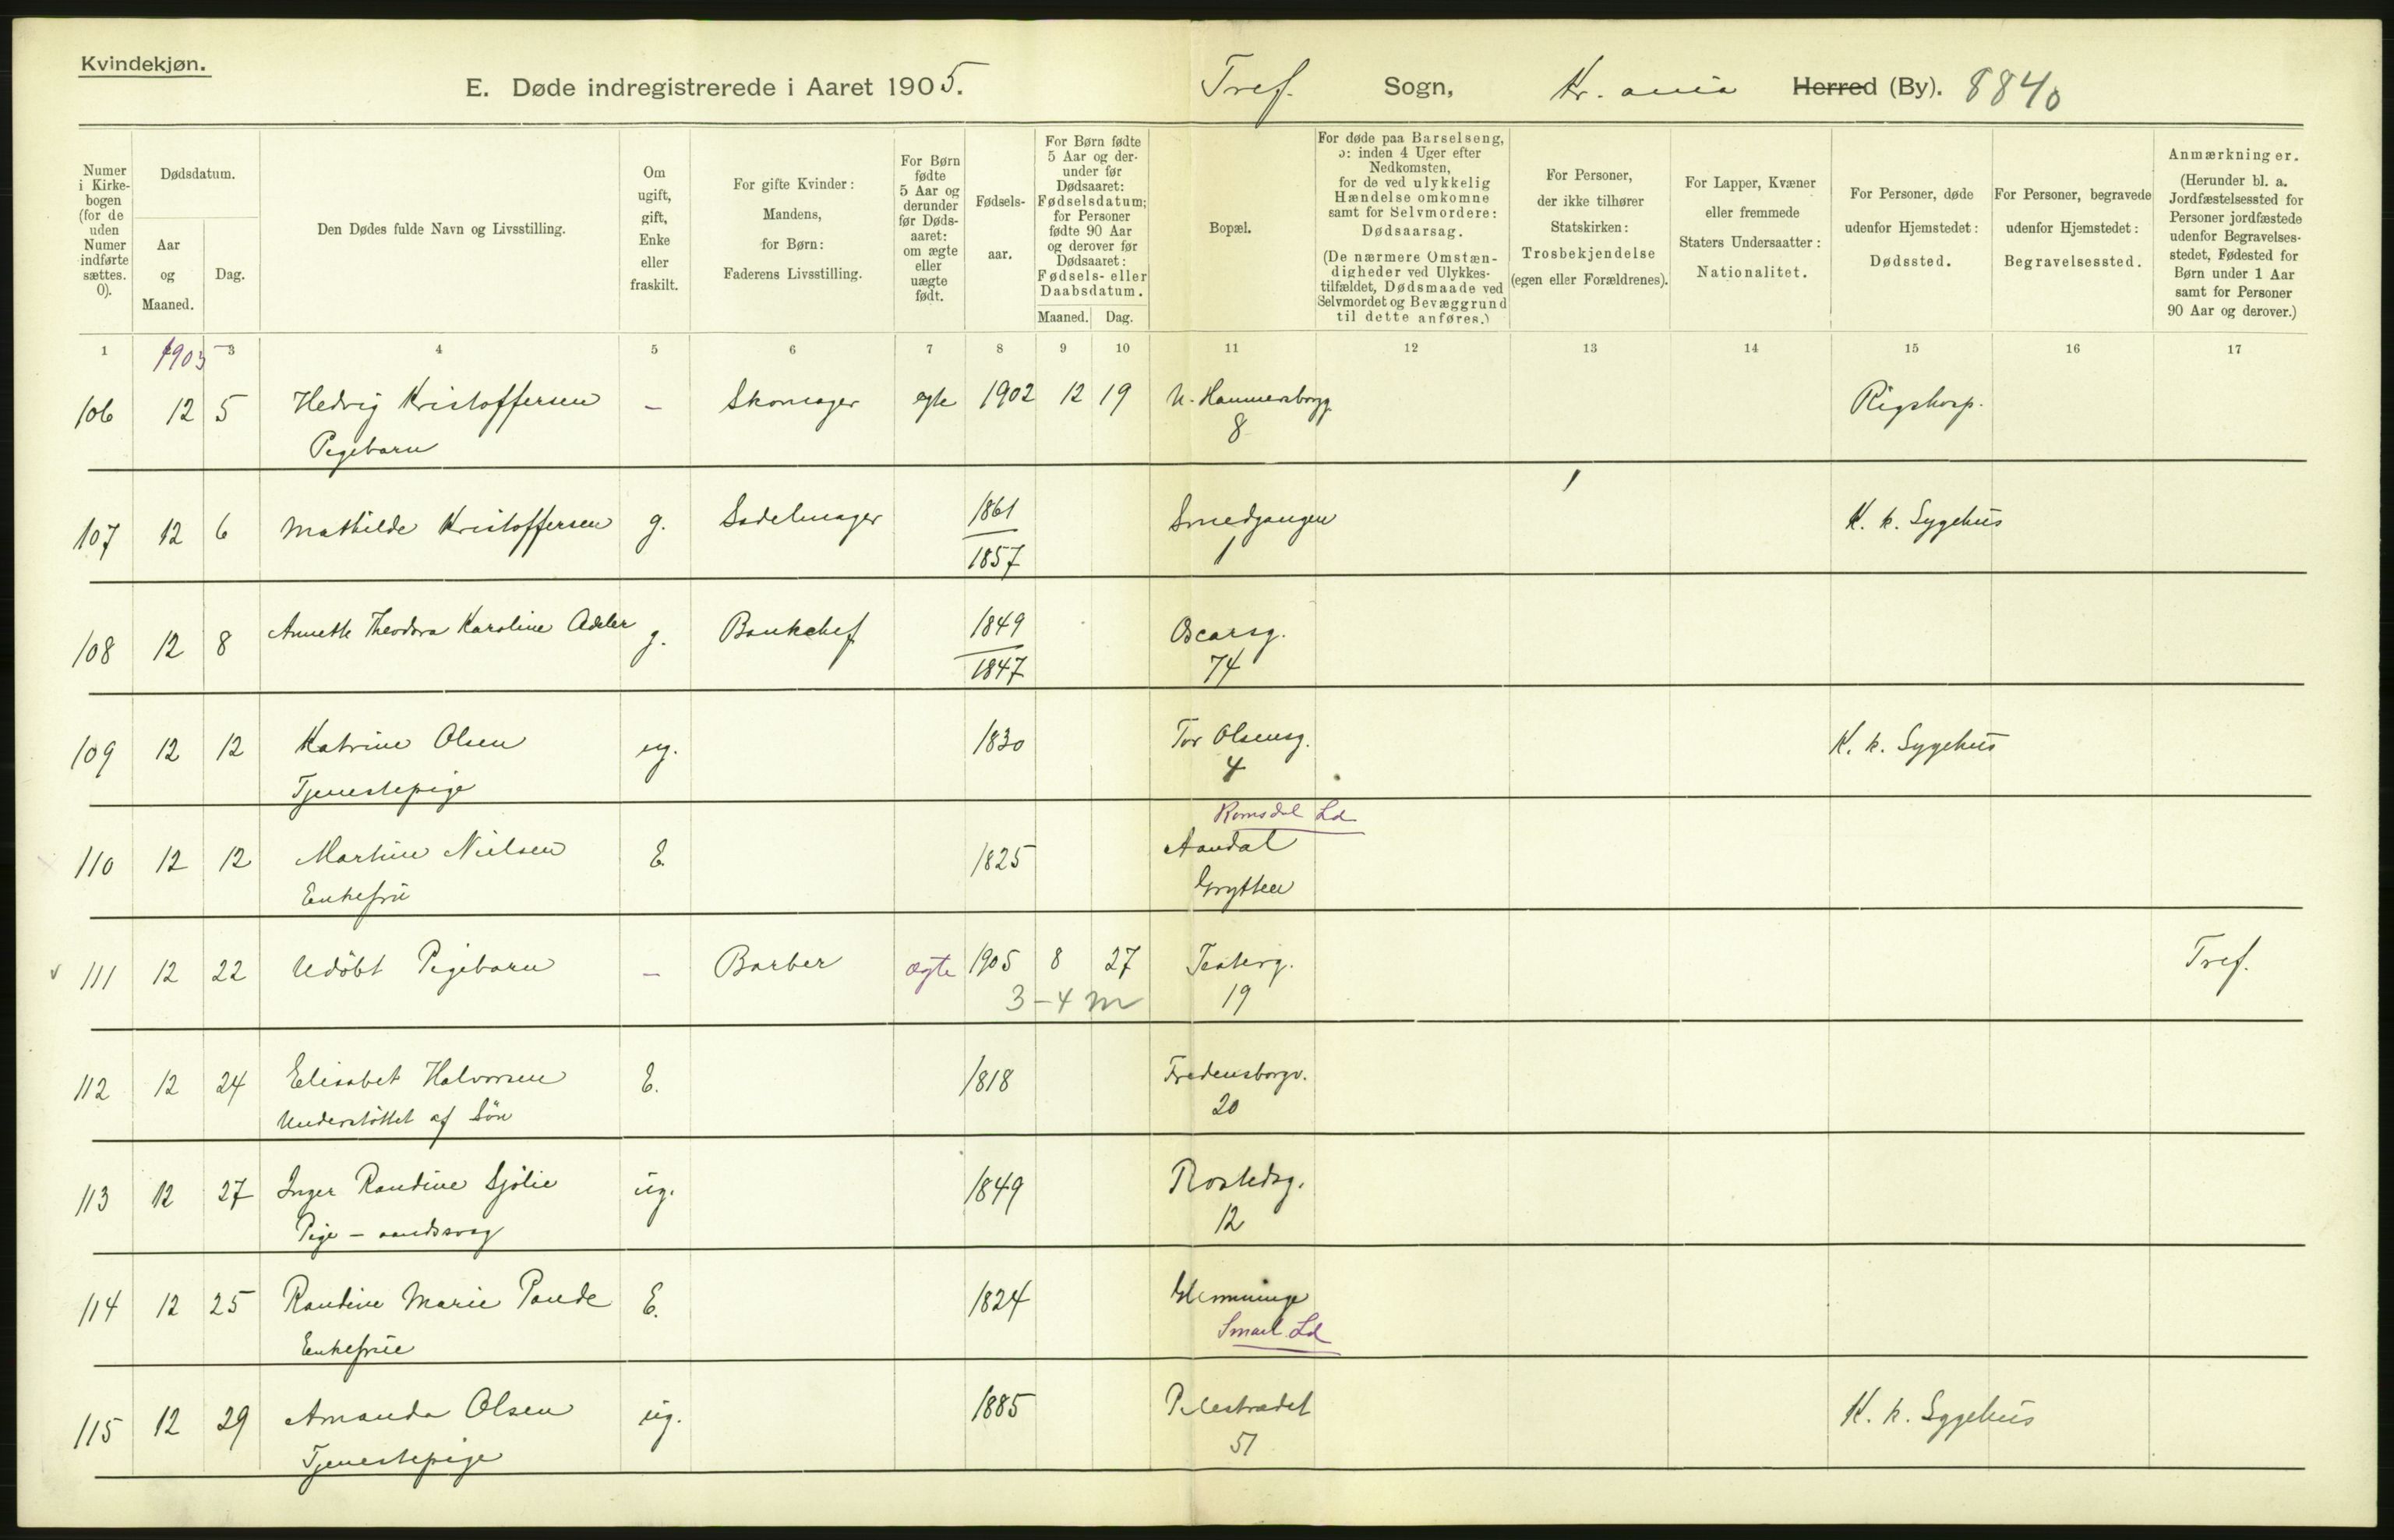 Kvindekjøn.
E. Døde indregistrerede i Aaret 1905. Tref. Sogn, Kr. ania Herred (By). 8840
Numer i Kirkebogen (for de uden Numer indførte sættes. 0).
Dødsdatum.
Aar og Maaned.
Dag.
Den Dødes fulde Navn og Livsstilling.
Om ugift, gift, Enke eller fraskilt.
For gifte Kvinder: Mandens, for Børn: Faderens Livsstilling.
For Børn fødte 5 Aar og derunder før Dødsaaret: om ægte eller uægte født.
Fødselsaar.
For Børn fødte 5 Aar og derunder før Dødsaaret: Fødselsdatum; for Personer fødte 90 Aar og derover før Dødsaaret: Fødsels- eller Daabsdatum.
Maaned. Dag.
Bopæl.
For døde paa Barselseng, ɔ: inden 4 Uger efter Nedkomsten, for de ved ulykkelig Hændelse omkomne samt for Selvmordere: Dødsaarsag.
(De nærmere Omstændigheder ved Ulykkestilfældet, Dødsmaade ved Selvmordet og Bevæggrund til dette anføres.)
For Personer, der ikke tilhører Statskirken: Trosbekjendelse (egen eller Forældrenes).
For Lapper, Kvæner eller fremmede Staters Undersaatter: Nationalitet.
For Personer, døde udenfor Hjemstedet: Dødssted.
For Personer, begravede udenfor Hjemstedet: Begravelsessted.
Anmærkninger.
(Herunder bl. a. Jordfæstelsessted for Personer jordfæstede udenfor Begravelsesstedet, Fødested for Børn under 1 Aar samt for Personer 90 Aar og derover.)
1 3 4 5 6 7 8 9 10 11 12 13 14 15 16 17
1905
106 12 5 Hedvig Kristoffersen – Skomager egte 1902 12 19 N. Hammersborgg. Rigshosp.
Pigebarn 8
107 12 6 Mathilde Kristoffersen g. Sadelmager 1861 Smedgangen K. k. Sygehus
1857 1
108 12 8 Annette Theodora Karoline Adeler g. Bankchef 1849 Oscarsg.
1847 74
109 12 12 Katrine Olsen ug. 1830 Tor Olsensg. K. k. Sygehus
Tjenestepige 4
Romsdal Ld
110 12 12 Martine Nielsen E. 1825 Aandal
Enkefru Grytten
111 12 22 Udöbt Pigebarn – Barber ægte 1905 8 27 Teaterg. Tref.
3-4 m 19
112 12 24 Elisabet Halvorsen E. 1818 Fredensborgv.
Understöttet af Sön 20
113 12 27 Inger Randine Sjölie ug. 1849 Rostedsg.
Pige – aandssvag 12
114 12 25 Randine Marie Paude E. 1824 Glemminge
Enkefrue Smaal. Ld
115 12 29 Amanda Olsen ug. 1885 Pilestrædet K. k. Sygehus
Tjenestepige 51